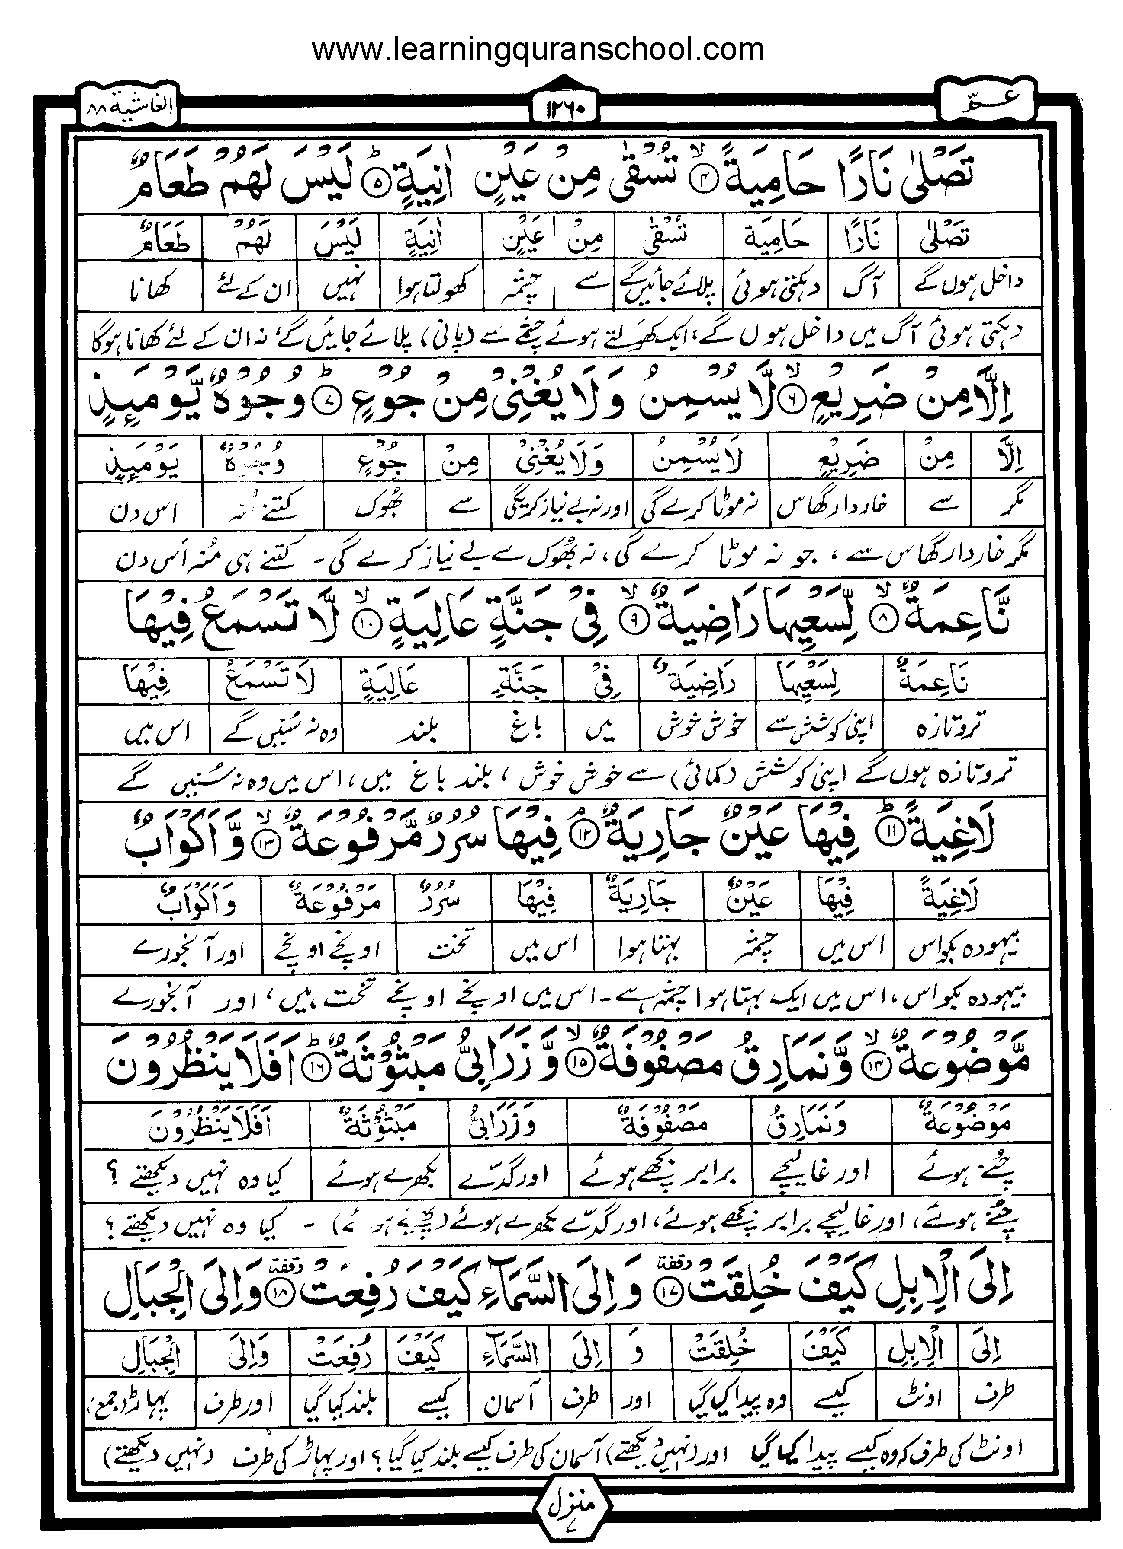 www.learningquranschool.com
عم ۱۲۶۰ الغاشية ۸۸
تَصْلٰى نَارًا حَامِيَةً ۙ۴ تُسْقٰى مِنْ عَيْنٍ اٰنِيَةٍ ؕ۵ لَيْسَ لَهُمْ طَعَامٌ
تَصْلٰى نَارًا حَامِيَةً تُسْقٰى مِنْ عَيْنٍ اٰنِيَةٍ لَيْسَ لَهُمْ طَعَامٌ
داخل ہوں گے آگ دہکتی ہوئی پلائے جائیں گے سے چشمہ کھولتا ہوا نہیں ان کے لئے کھانا
دہکتی ہوئی آگ میں داخل ہوں گے، ایک کھولتے ہوئے چشمے سے (پانی) پلائے جائیں گے نہ ان کے لئے کھانا ہوگا
اِلَّا مِنْ ضَرِيْعٍ ۙ۶ لَّا يُسْمِنُ وَلَا يُغْنِيْ مِنْ جُوْعٍ ؕ۷ وُجُوْهٌ يَّوْمَىِٕذٍ
اِلَّا مِنْ ضَرِيْعٍ لَا يُسْمِنُ وَلَا يُغْنِيْ مِنْ جُوْعٍ وُجُوْهٌ يَوْمَىِٕذٍ
مگر سے خاردار گھاس نہ موٹا کرے گی اور نہ بے نیاز کریگی سے بھوک کتنے منہ اس دن
مگر خاردار گھاس سے، جو نہ موٹا کرے گی، نہ بھوک سے بے نیاز کرے گی۔ کتنے ہی مُنہ اُس دن
نَّاعِمَةٌ ۙ۸ لِّسَعْيِهَا رَاضِيَةٌ ۙ۹ فِيْ جَنَّةٍ عَالِيَةٍ ۙ۱۰ لَّا تَسْمَعُ فِيْهَا
نَاعِمَةٌ لِسَعْيِهَا رَاضِيَةٌ فِيْ جَنَّةٍ عَالِيَةٍ لَا تَسْمَعُ فِيْهَا
تروتازہ اپنی کوشش سے خوش خوش میں باغ بلند وہ نہ سنیں گے اس میں
تروتازہ ہوں گے اپنی کوشش (کمائی) سے خوش خوش، بلند باغ میں، اس میں وہ نہ سُنیں گے
لَاغِيَةً ؕ۱۱ فِيْهَا عَيْنٌ جَارِيَةٌ ۘ۱۲ فِيْهَا سُرُرٌ مَّرْفُوْعَةٌ ۙ۱۳ وَّاَكْوَابٌ
لَاغِيَةً فِيْهَا عَيْنٌ جَارِيَةٌ فِيْهَا سُرُرٌ مَرْفُوْعَةٌ وَاَكْوَابٌ
بیہودہ بکواس اس میں چشمہ بہتا ہوا اس میں تخت اونچے اونچے اور آبخورے
بیہودہ بکواس، اس میں ایک بہتا ہوا چشمہ ہے۔ اس میں اونچے اونچے تخت ہیں، اور آبخورے
مَّوْضُوْعَةٌ ۙ۱۴ وَّنَمَارِقُ مَصْفُوْفَةٌ ۙ۱۵ وَّزَرَابِيُّ مَبْثُوْثَةٌ ؕ۱۶ اَفَلَا يَنْظُرُوْنَ
مَوْضُوْعَةٌ وَنَمَارِقُ مَصْفُوْفَةٌ وَزَرَابِيُّ مَبْثُوْثَةٌ اَفَلَا يَنْظُرُوْنَ
چنے ہوئے اور غالیچے برابر بچھے ہوئے اور گدے بکھرے ہوئے کیا وہ نہیں دیکھتے؟
چنے ہوئے، اور غالیچے برابر بچھے ہوئے، اور گدے بکھرے ہوئے (پھیلے ہوئے)۔ کیا وہ نہیں دیکھتے؟
اِلَى الْاِبِلِ كَيْفَ خُلِقَتْ ۱۷ وقفة وَاِلَى السَّمَآءِ كَيْفَ رُفِعَتْ ۱۸ وقفة وَاِلَى الْجِبَالِ
اِلَى الْاِبِلِ كَيْفَ خُلِقَتْ وَ اِلَى السَّمَآءِ كَيْفَ رُفِعَتْ وَاِلَى الْجِبَالِ
طرف اونٹ کیسے وہ پیدا کیا گیا اور طرف آسمان کیسے بلند کیا گیا اور طرف پہاڑ (جمع)
اونٹ کی طرف کہ وہ کیسے پیدا کیا گیا اور (نہیں دیکھتے) آسمان کی طرف کیسے بلند کیا گیا؟ اور پہاڑ کی طرف (نہیں دیکھتے)
منزل ۷